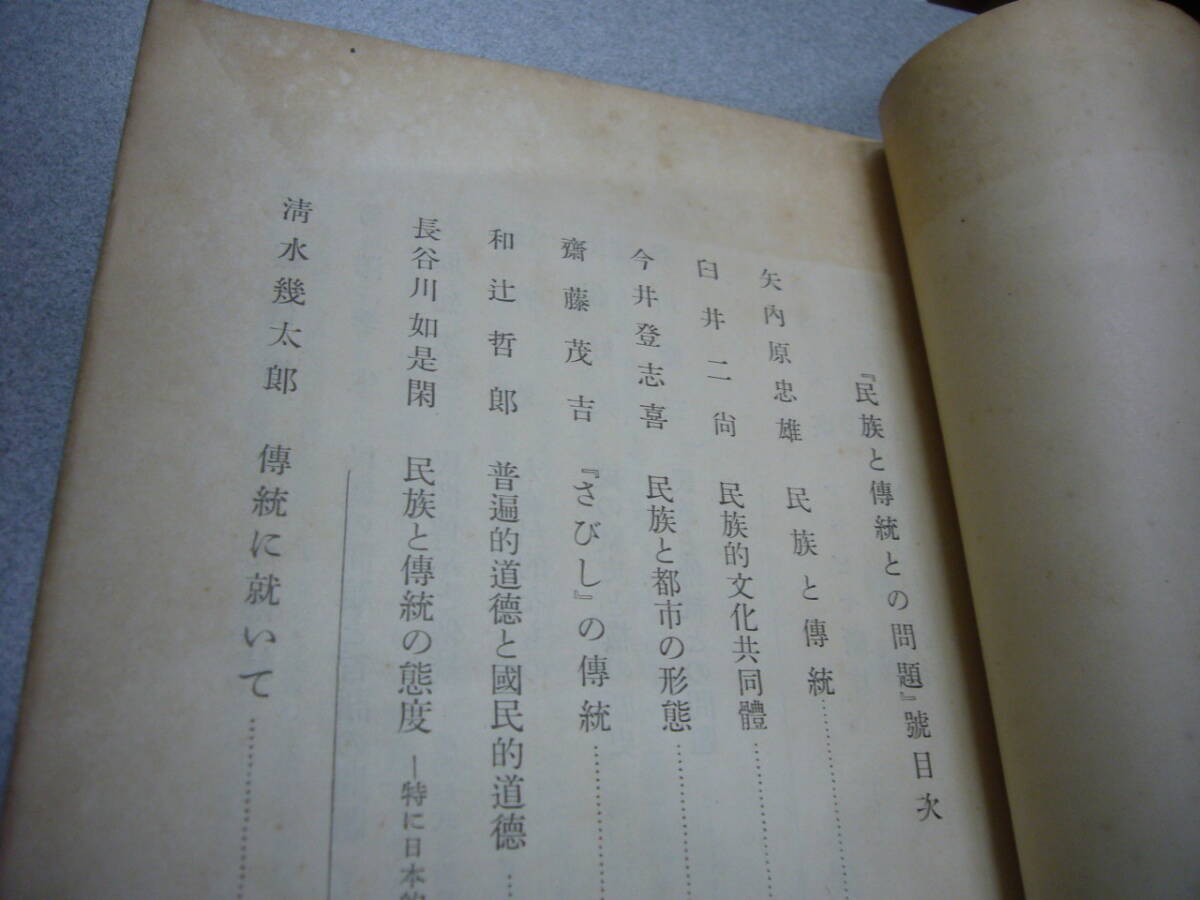 『民族と傳統との問題』號目次
矢內原忠雄 民族と傳統……………
臼井二尙 民族的文化共同體……………
今井登志喜 民族と都市の形態……………
齋藤茂吉 『さびし』の傳統……………
和辻哲郎 普遍的道德と國民的道德…
長谷川如是閑 民族と傳統の態度 ―特に日本的
淸水幾太郎 傳統に就いて……………